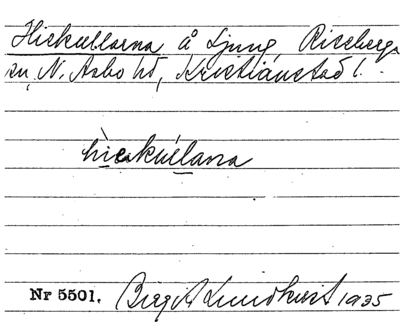 Hiekullarna å Ljung, Riseberga
sn, N. Åsbo hd, Kristianstad l.
hìeakúllana
Nr 5501. Birgit Lundkvist 1935